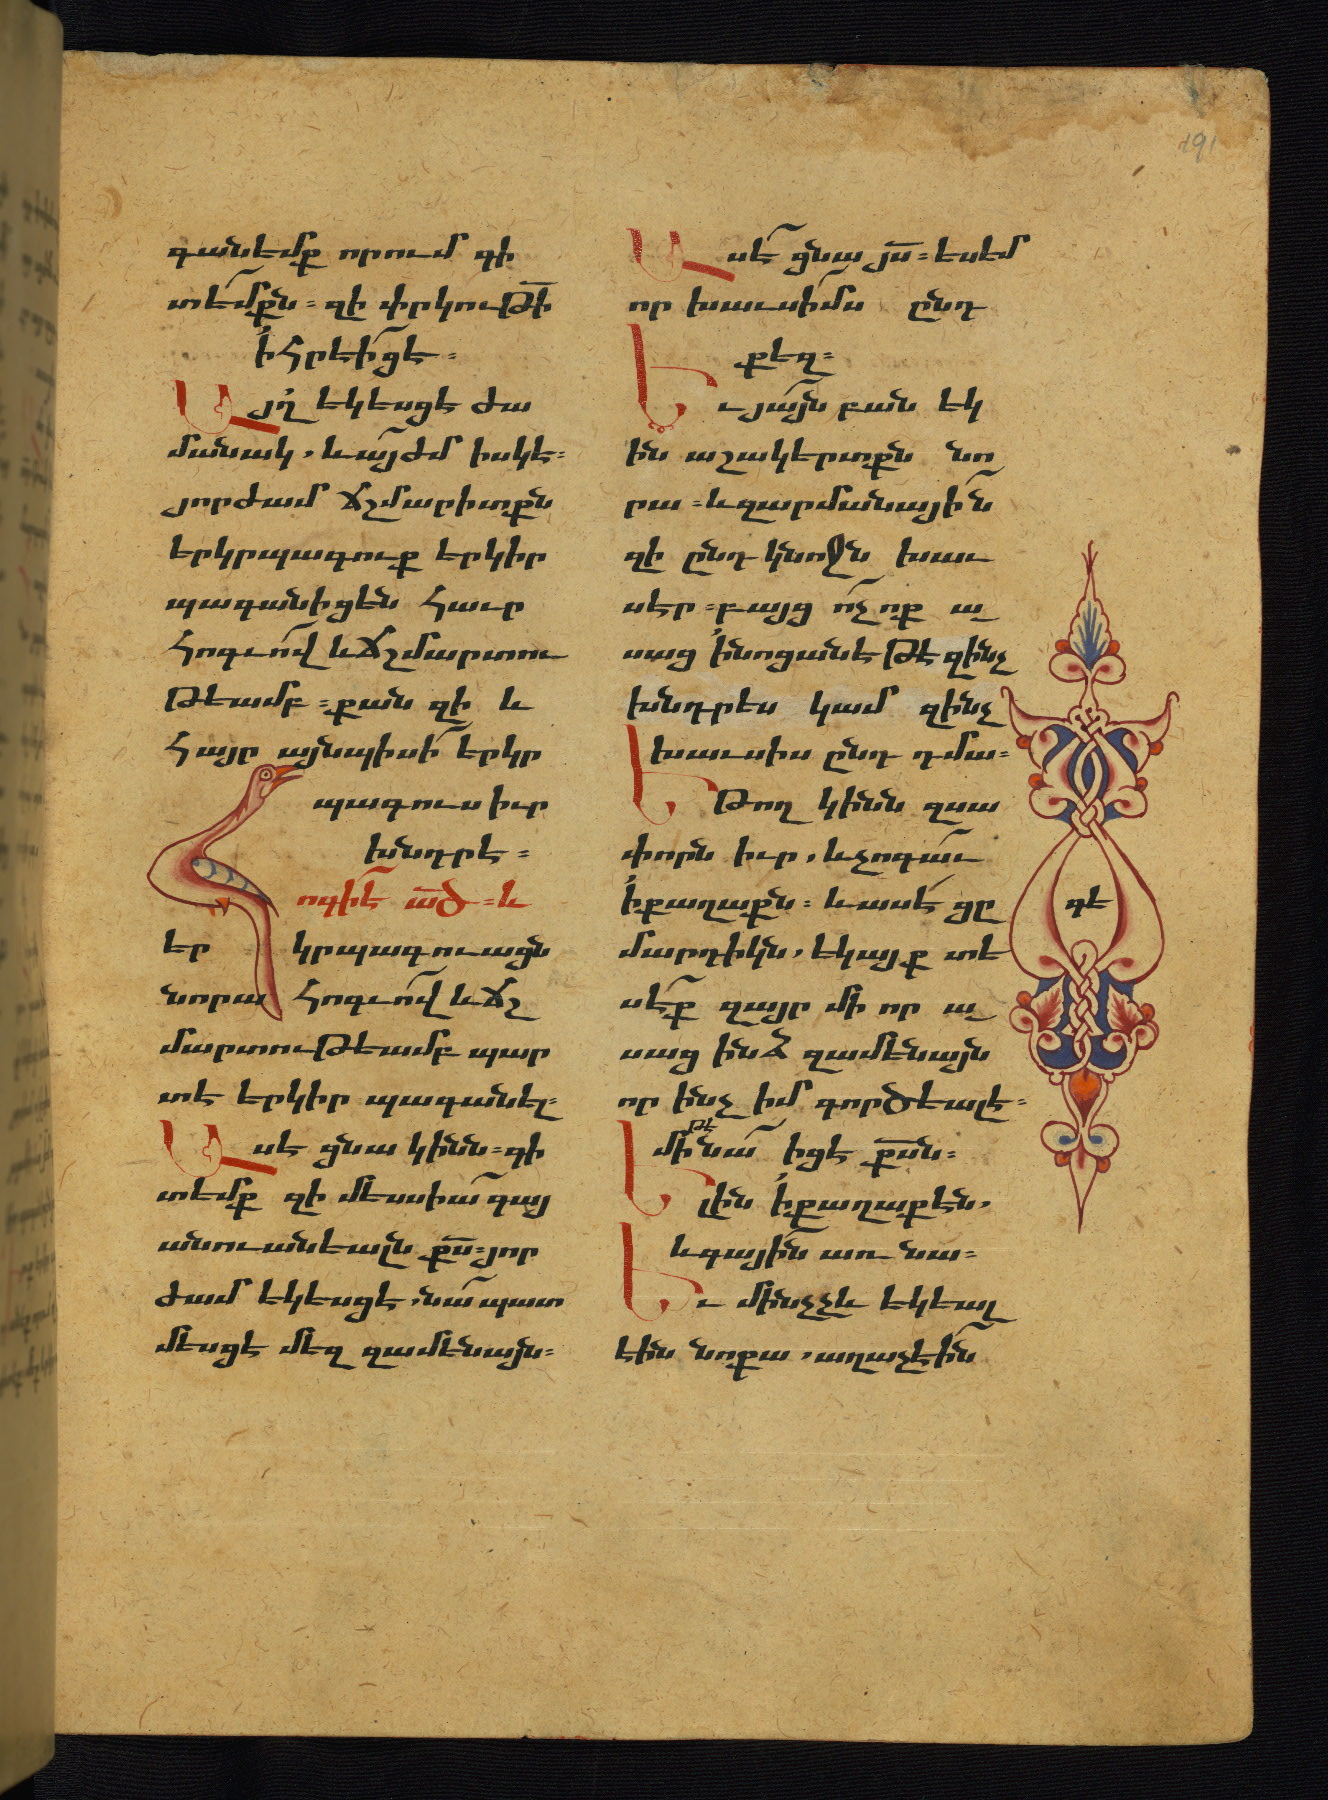 գանեմք որում գի
տեմքն = զի փրկուԹի
ի Հրեից է =
Այղ եկեսցէ ժա
մանակ, և այժմ իսկ է =
յորժամ ճշմարիտքն
երկրպագուք երկիր
պագանիցեն Հաւր
Հոգւով և ճշմարտու
Թեամբ = քան զի և
Հայր այնպիսի երկր
պագուս իւր
խնդրէ =
Հոգի է ած = և
եր կրպագուացն
նորա Հոգւով և ճշ
մարտուԹեամբ պար
տէ երկիր պագանել =
Ասէ ցնա կինն = գի
տեմք զի մեսսիա գայ
անուանեալն քս = յոր
ժամ եկեսցէ, նա պատ
մեսցէ մեզ զամենայն =
Ասէ ցնա յս = ես եմ
որ խաւսիմս ընդ
քեզ =
Եւ յայն բան եկ
ին աշակերտքն նո
րա = և զարմանային
զի ընդ կնոջն խաւ
սէր = բայց ոչ ոք ա
սաց ի նոցանէ Թէ զինչ
խնդրես կամ զինչ
խաւսիս ընդ դմա =
Եթող կինն զսա
փորն իւր, և չոգաւ
ի քաղաքն = և ասէ ցը
մարդիկն, եկայք տե
սէք զայր մի որ ա
սաց ինձ զամենայն
որ ինչ իմ գործեալ է =
Թէ
մի նա իցէ քսն =
Ելին ի քաղաքէն,
և գային առ նա =
Եւ մինչչև եկեալ
էին նոքա, աղաչէին
գե
191